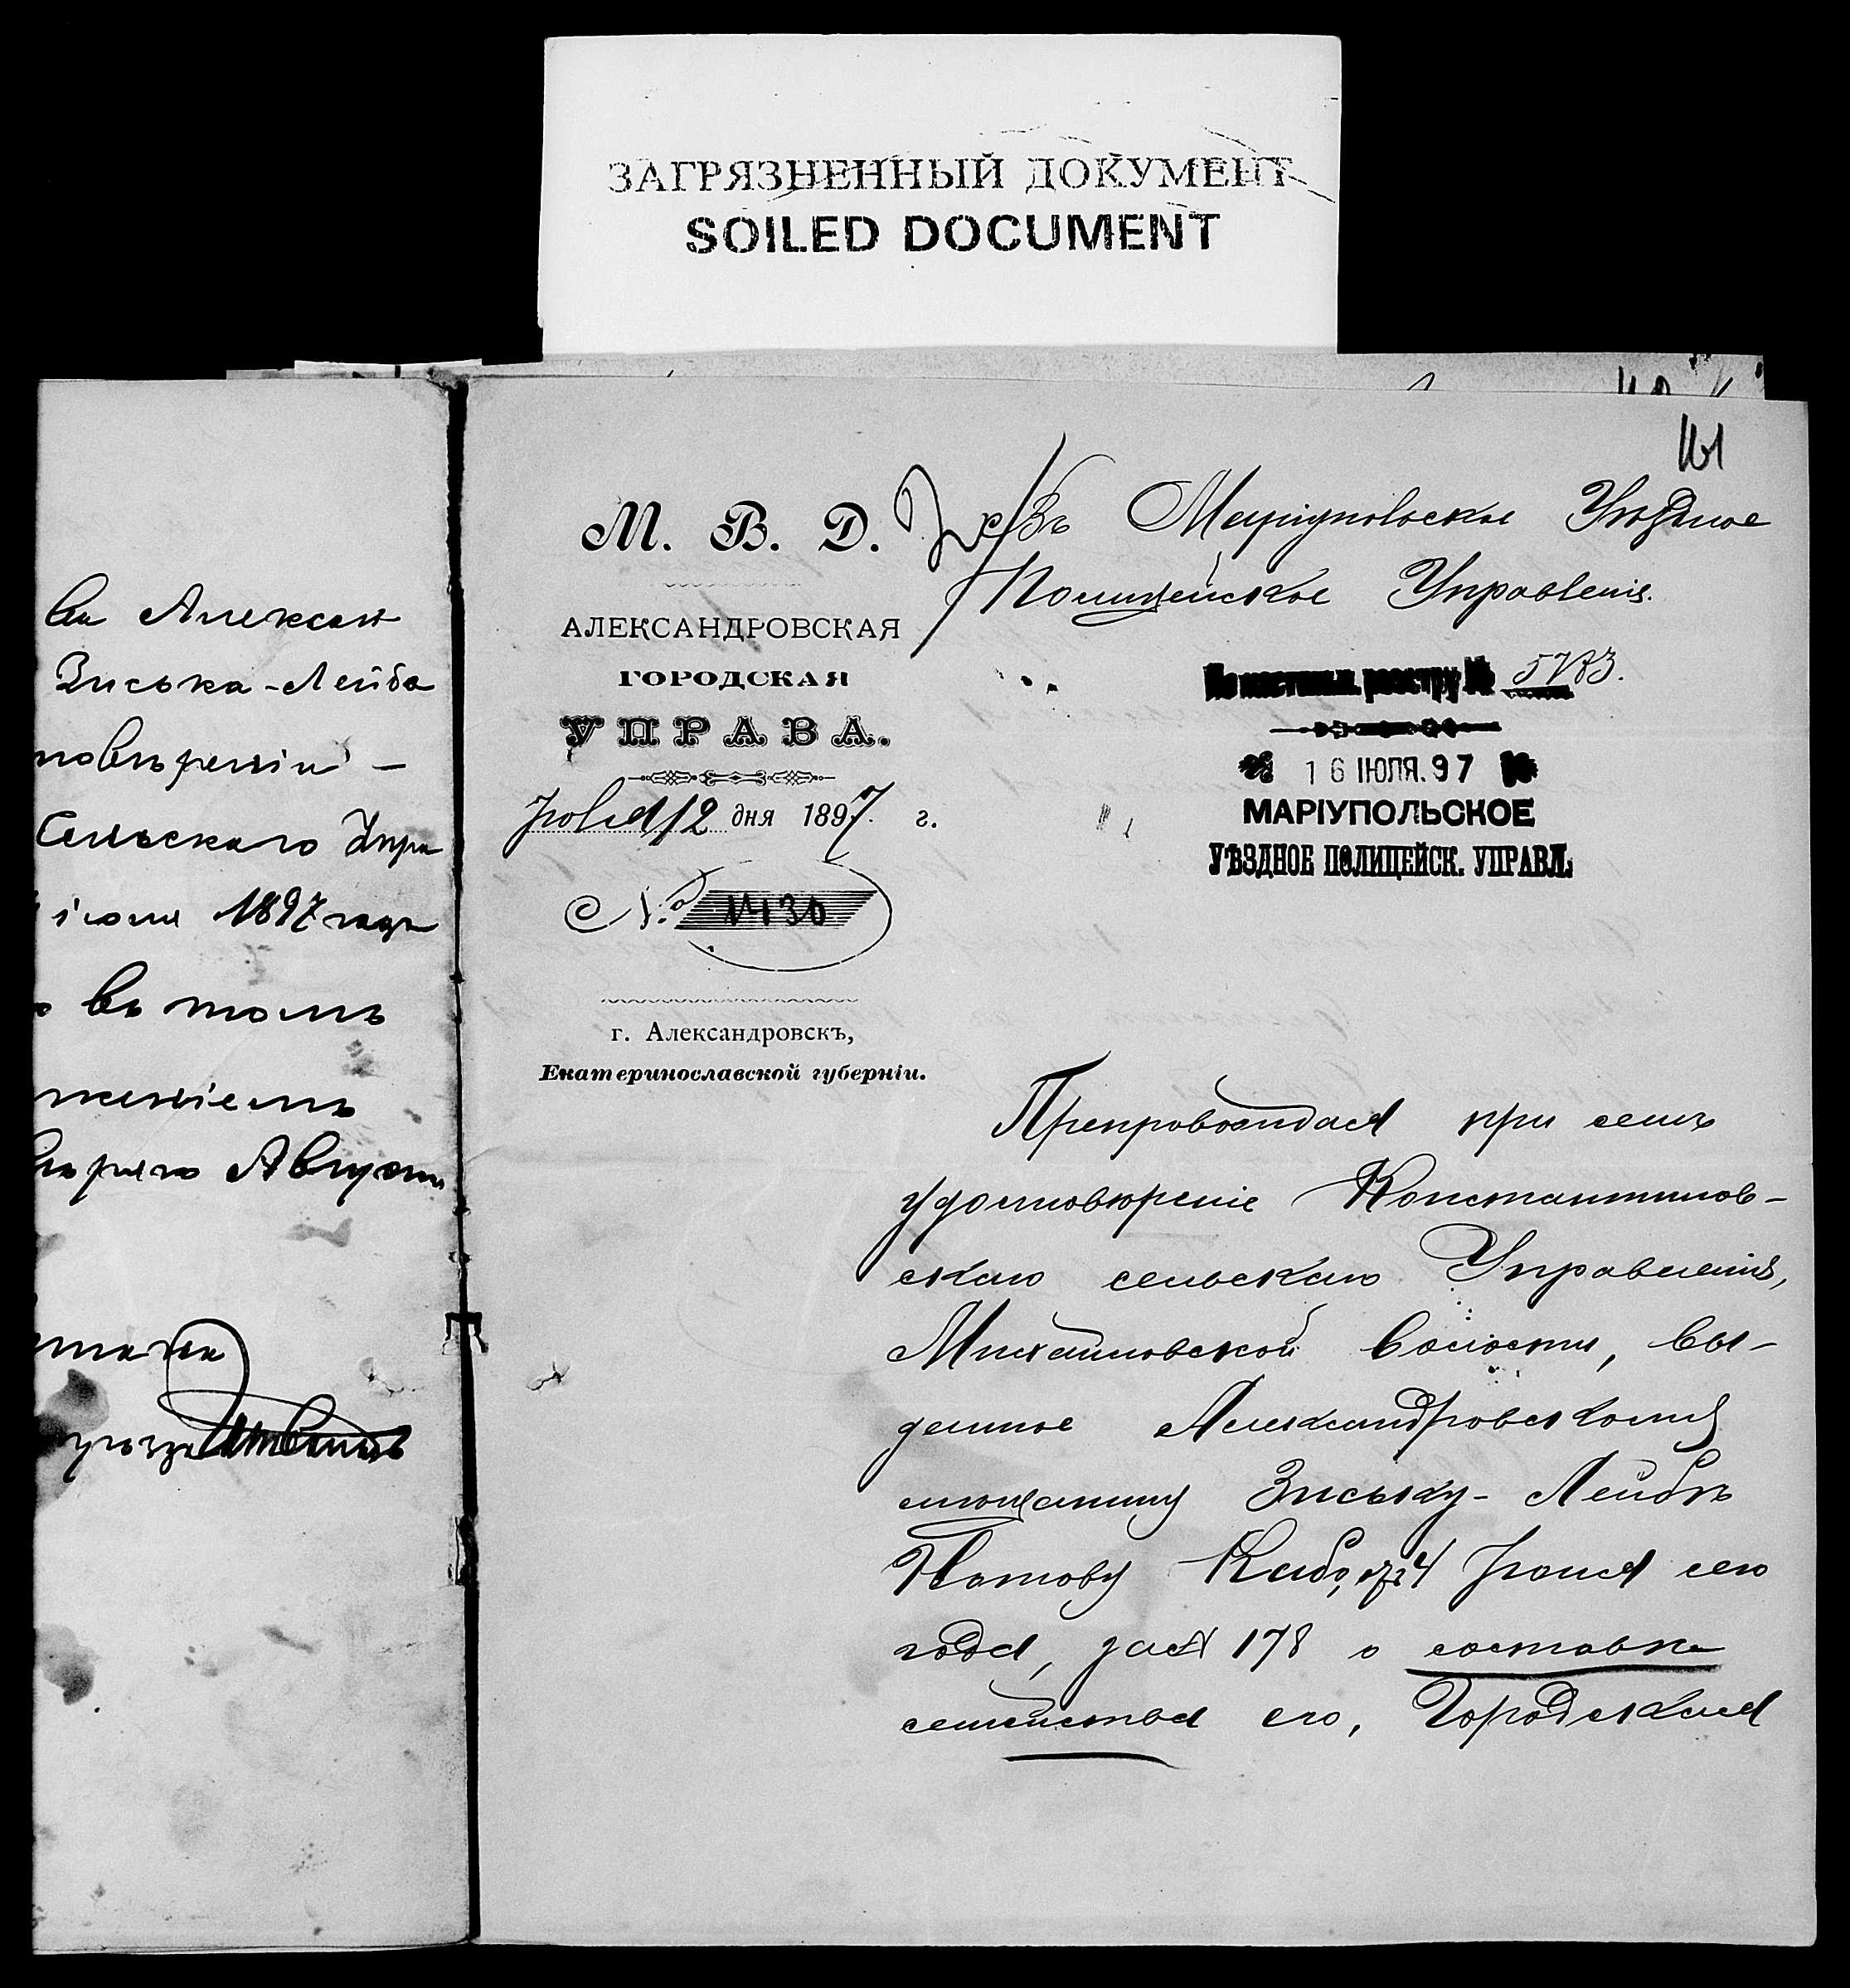 ЗАГРЯЗНЕННЫЙ ДОКУМЕНТ
SOILED DOCUMENT
ва Алексан
Зиська-Лейба
товѣреніи –
Сельскаго Упра
іюля 1897 года
въ томъ
женіемъ
Августа
161
М. В. Д.
АЛЕКСАНДРОВСКАЯ
ГОРОДСКАЯ
УПРАВА.
Іюля 12 дня 1897 г.
№ 1430
г. Александровскъ,
Екатеринославской губерніи.
Въ Маріупольское Уѣздное
Полицейское Управленіе.
По настольн. реестру № 5783.
16 ІЮЛЯ.97
МАРІУПОЛЬСКОЕ
УѢЗДНОЕ ПОЛИЦЕЙСК. УПРАВЛ.
Препровождая при семъ
удостовѣреніе Константинов-
скаго сельскаго Управленія,
Михайловской волости, вы-
данное Александровскому
мѣщанину Зиську-Лейбѣ
4 Іюля сего
года, за № 178 о составѣ
семейства его, Городская